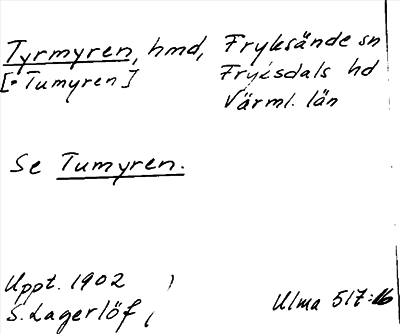 Tyrmyren, hmd, Fryksände sn
[= Tumyren] Fryksdals hd
Värml. län
Se Tumyren.
Uppt. 1902
S. Lagerlöf
Ulma 517:16